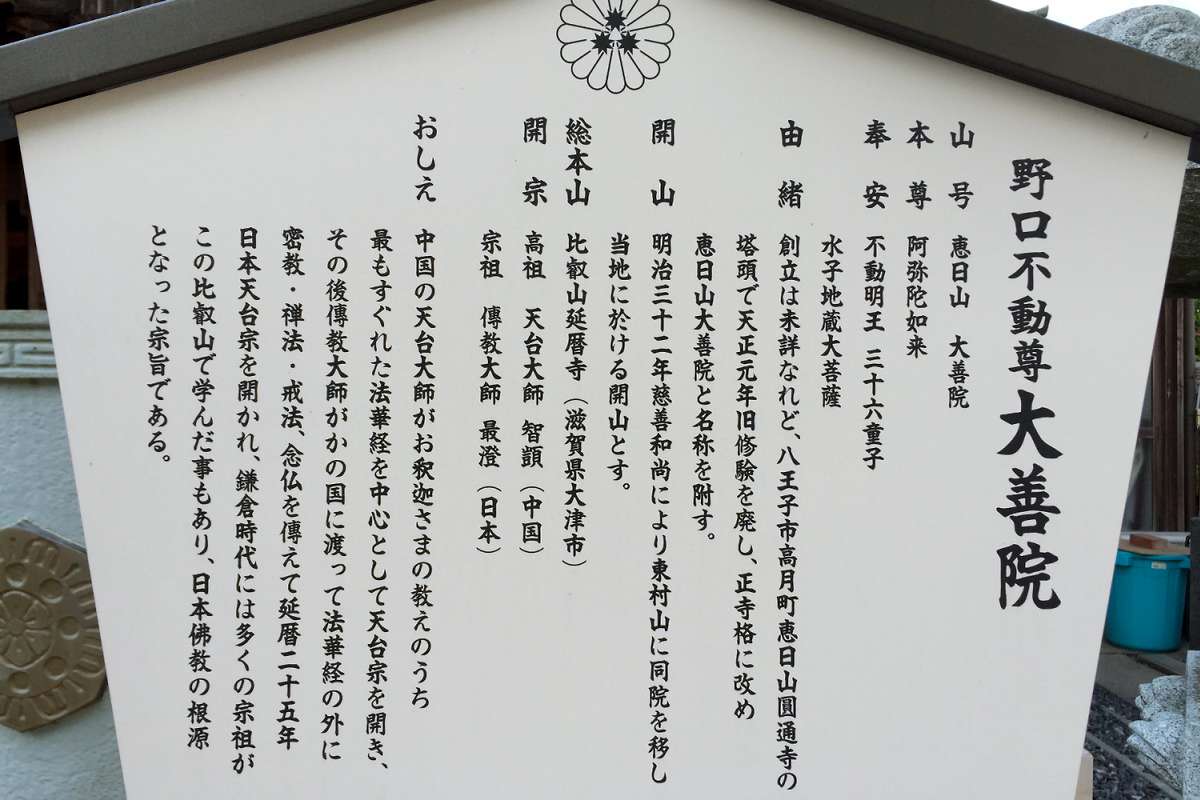 野口不動尊大善院
山号 恵日山 大善院
本尊 阿弥陀如来
奉安 不動明王 三十六童子
水子地蔵大菩薩
由緒 創立は未詳なれど、八王子市高月町恵日山圓通寺の
塔頭で天正元年旧修験を廃し、正寺格に改め
恵日山大善院と名称を附す。
開山 明治三十二年慈善和尚により東村山に同院を移し
当地に於ける開山とす。
総本山 比叡山延暦寺（滋賀県大津市）
開宗 高祖 天台大師 智顗（中国）
宗祖 傳教大師 最澄（日本）
おしえ 中国の天台大師がお釈迦さまの教えのうち
最もすぐれた法華経を中心として天台宗を開き、
その後傳教大師がかの国に渡って法華経の外に
密教・禅法・戒法、念仏を傳えて延暦二十五年
日本天台宗を開かれ、鎌倉時代には多くの宗祖が
この比叡山で学んだ事もあり、日本佛教の根源
となった宗旨である。